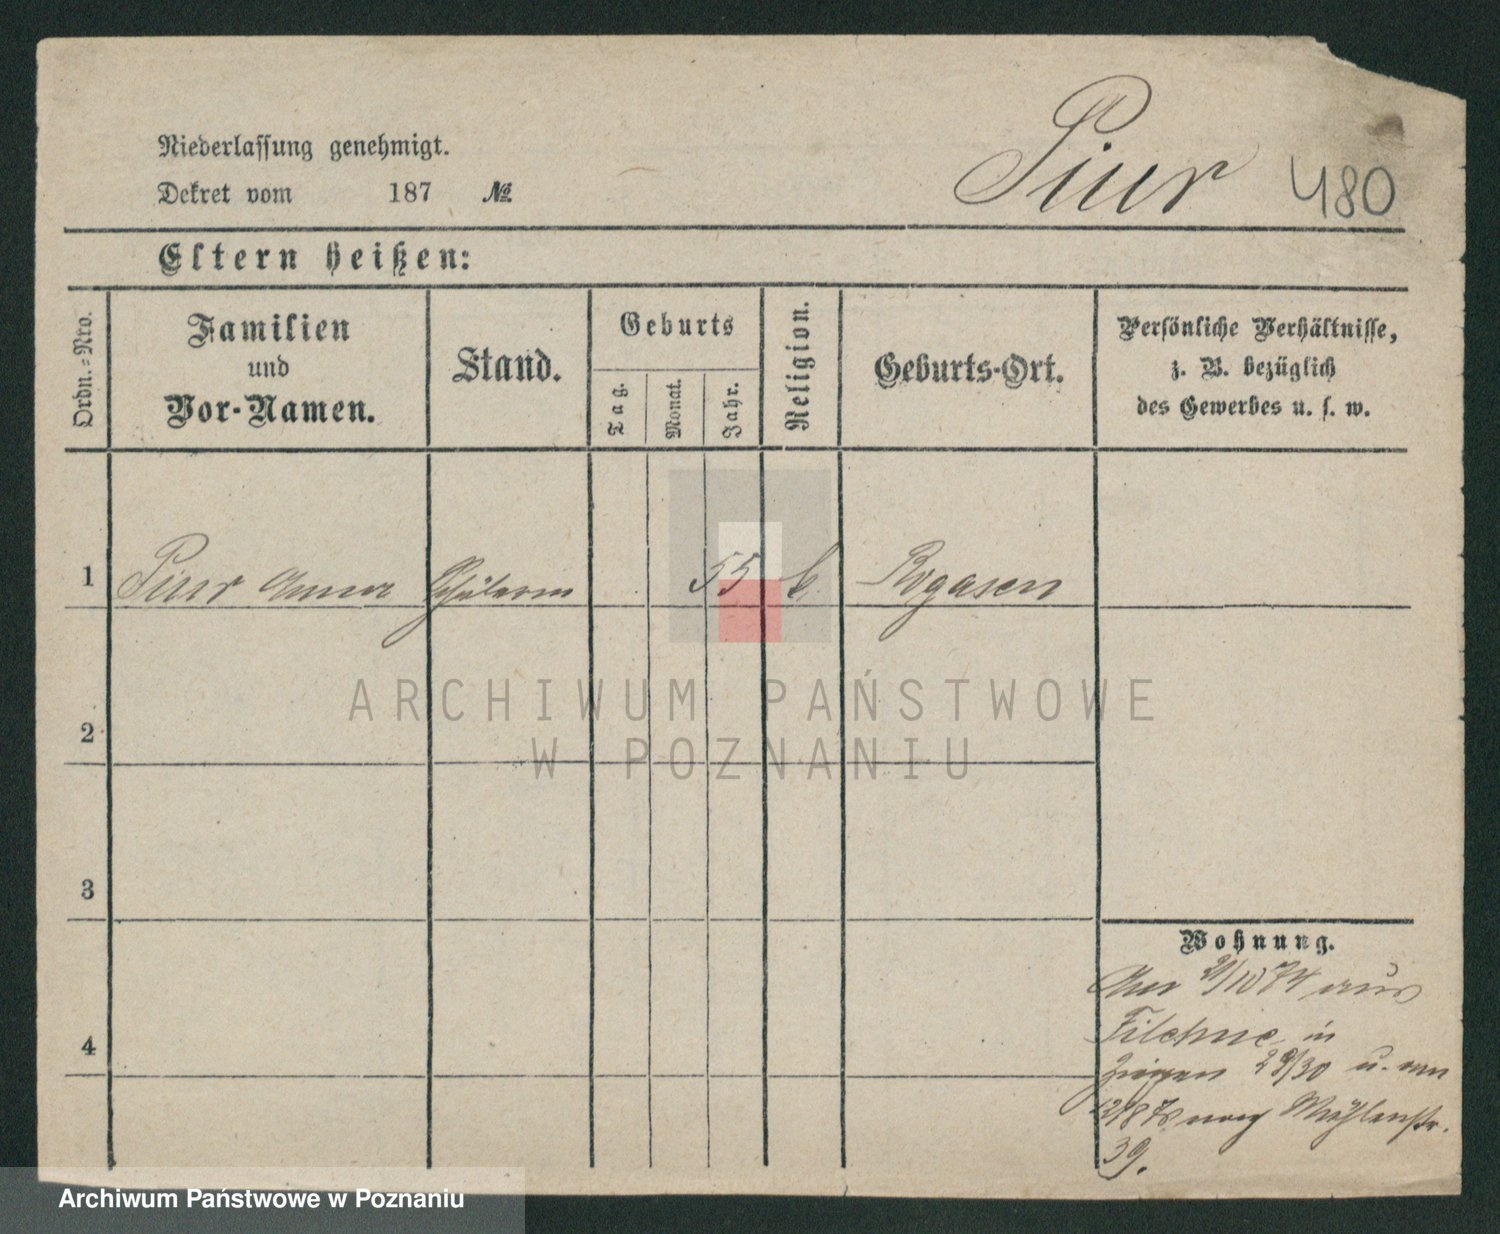 Piur 480
Niederlassung genehmigt.
Dekret vom 187 №
Eltern heißen:
Ordn.-Nro.
Familien
und
Vor-Namen.
Stand.
Geburts
Tag.
Monat.
Jahr.
Religion.
Geburts-Ort.
Persönliche Verhältnisse,
z. B. bezüglich
des Gewerbes u. s. w.
1 Piur Anna Schülerin 55 Rogasen
2
3
4
Wohnung.
aus
Filehne in
29/30 u. am
Mühlenstr.
39.
ARCHIWUM PAŃSTWOWE
W POZNANIU
Archiwum Państwowe w Poznaniu